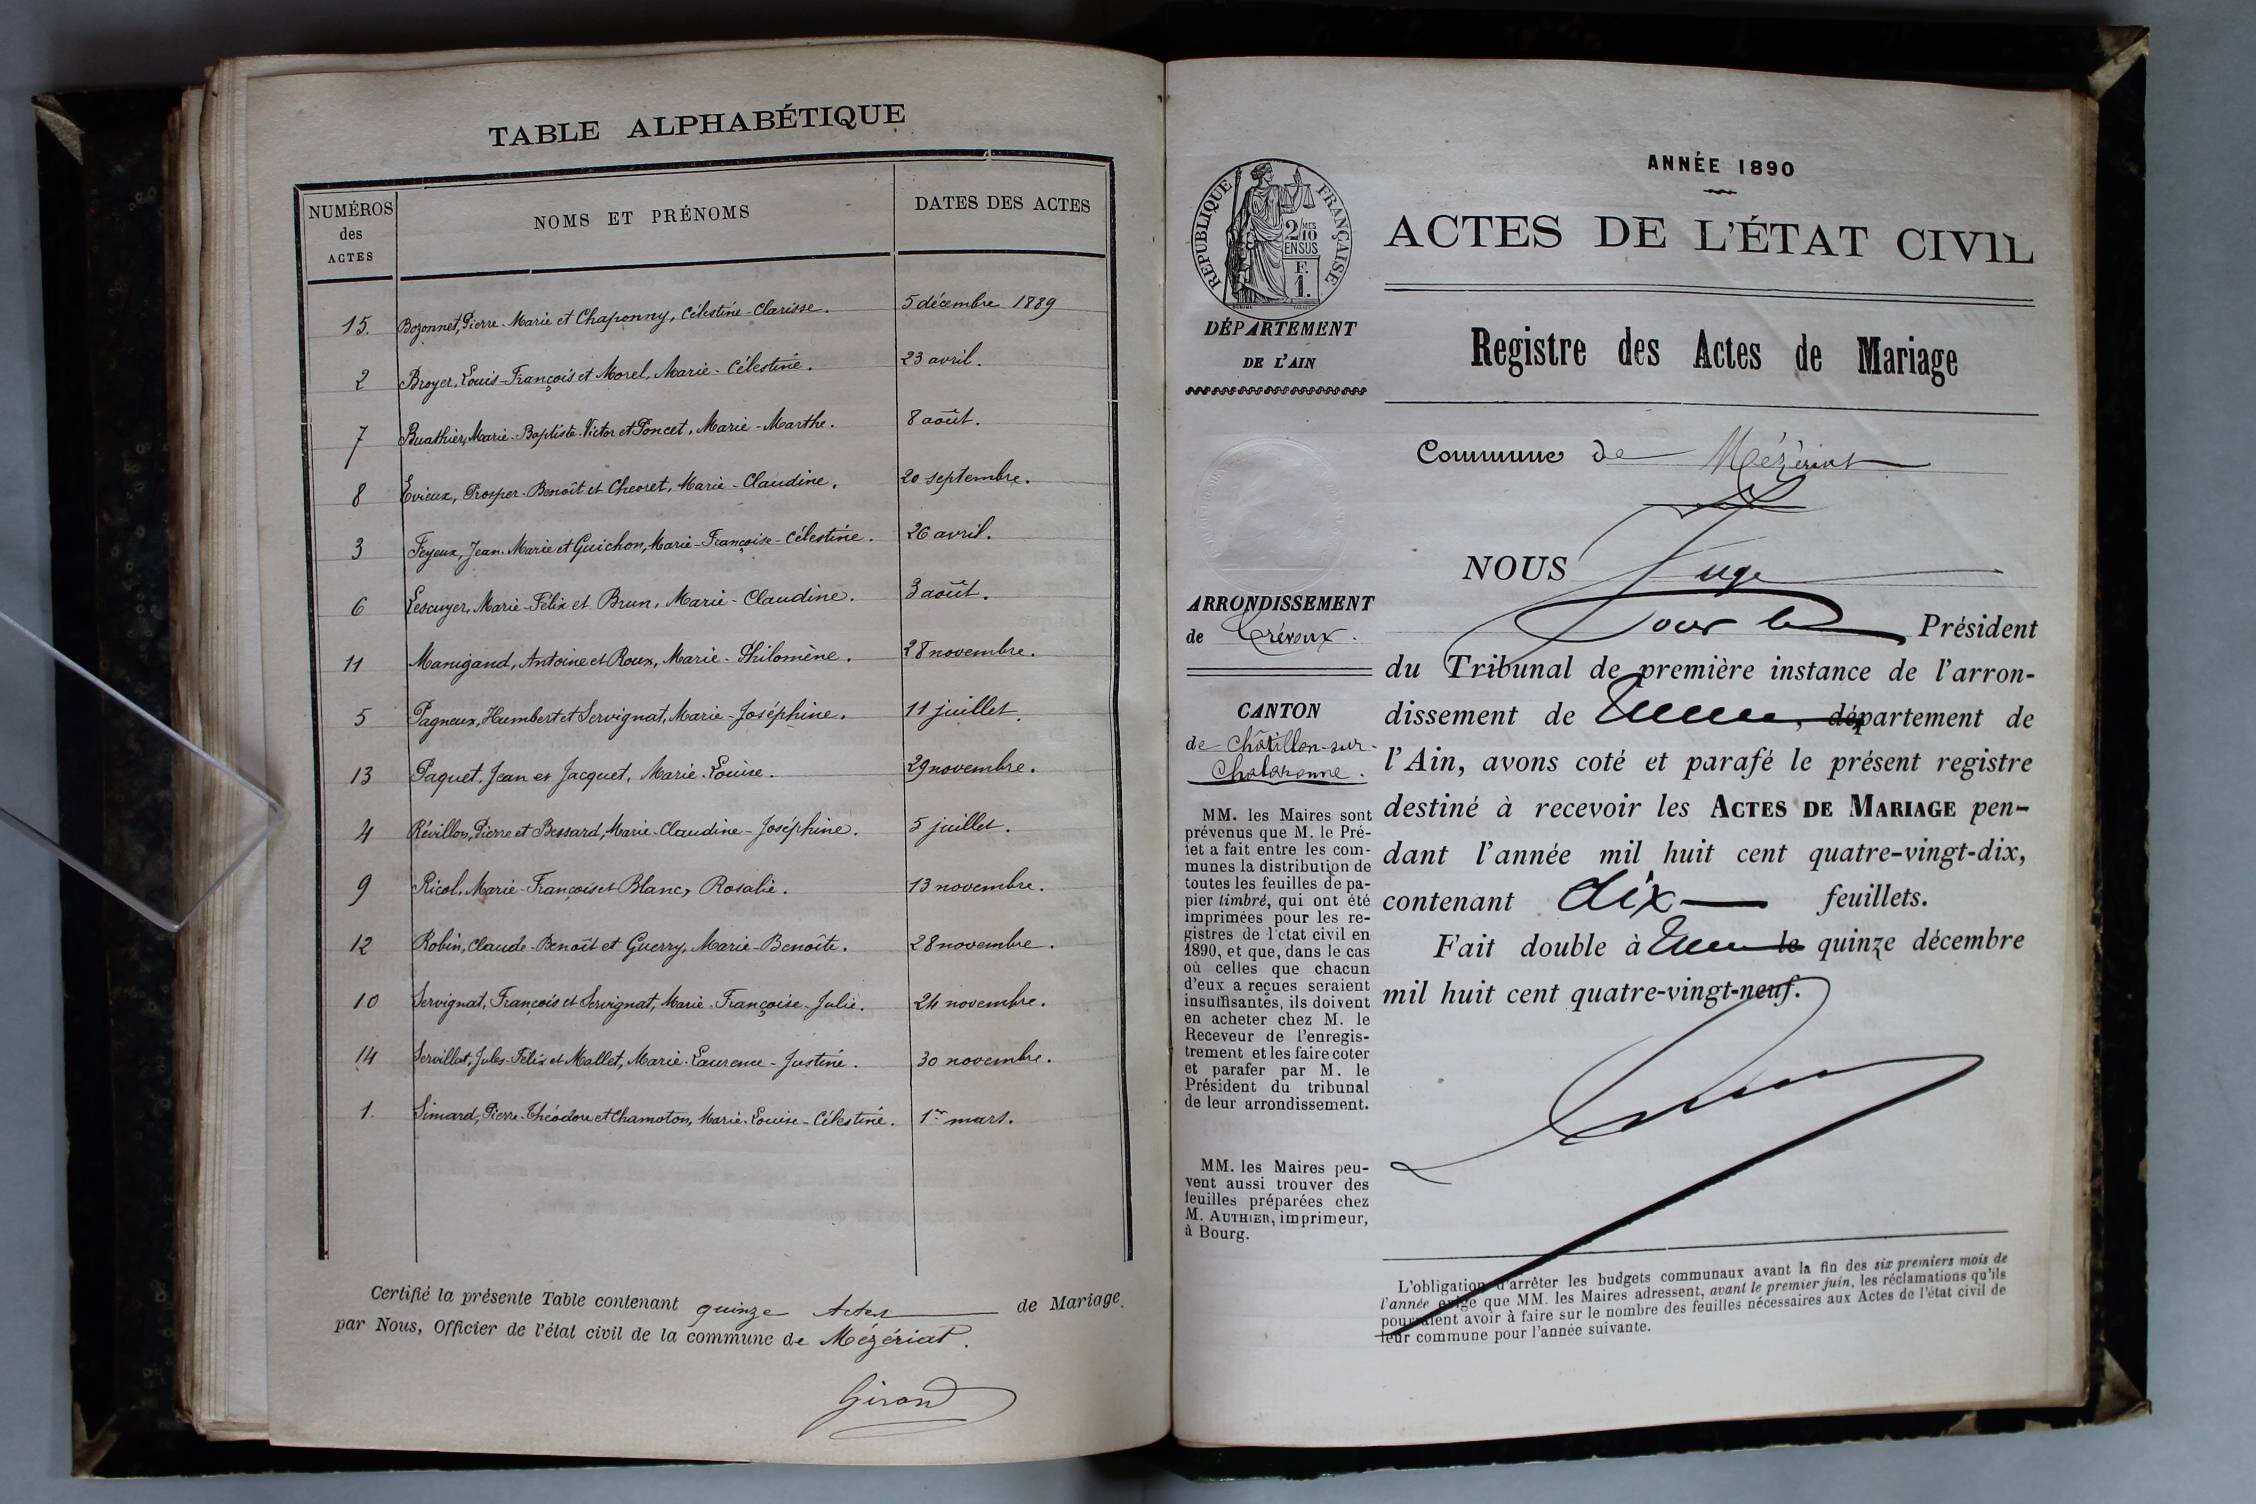 TABLE ALPHABÉTIQUE
NUMÉROS des ACTES
NOMS ET PRÉNOMS
DATES DES ACTES
15. Bozonnet, Pierre-Marie et Chaponny, Célestine-Clarisse. 5 décembre 1889
2 Broyer, Louis-François et Morel, Marie-Célestine. 23 avril.
7 Buathier, Marie-Baptiste-Victor et Poncet, Marie-Marthe. 8 août.
8 Evieux, Prosper-Benoît et Chevret, Marie-Claudine. 20 septembre.
3 Feyeux, Jean-Marie et Guichon, Marie-Françoise-Célestine. 26 avril.
6 Lescuyer, Marie-Félix et Brun, Marie-Claudine. 3 août.
11 Manigand, Antoine et Roux, Marie-Philomène. 28 novembre.
5 Pagneux, Humbert et Servignat, Marie-Joséphine. 11 juillet.
13 Paquet, Jean et Jacquet, Marie-Louise. 29 novembre.
4 Révillon, Pierre et Bessard, Marie-Claudine-Joséphine. 5 juillet.
9 Ricol, Marie-François et Blanc, Rosalie. 13 novembre.
12 Robin, Claude-Benoît et Guerry, Marie-Benoîte. 28 novembre.
10 Servignat, François et Servignat, Marie-Françoise-Julie. 24 novembre.
14 Servillat, Jules-Félix et Mallet, Marie-Laurence-Justine. 30 novembre.
1. Simard, Pierre-Théodore et Chamoton, Marie-Louise-Célestine. 1er mars.
Certifié la présente Table contenant quinze Actes de Mariage.
par Nous, Officier de l'état civil de la commune de Mézériat.
Girond
ANNÉE 1890
RÉPUBLIQUE FRANÇAISE
2/10 MES
EN SUS
F.
1.
ACTES DE L'ÉTAT CIVIL
DÉPARTEMENT
DE L'AIN
Registre des Actes de Mariage
Commune de Mézériat
ARRONDISSEMENT
de Trévoux.
CANTON
de Châtillon-sur-
Chalaronne.
MM. les Maires sont
prévenus que M. le Pré-
fet a fait entre les com-
munes la distribution de
toutes les feuilles de pa-
pier timbré, qui ont été
imprimées pour les re-
gistres de l'état civil en
1890, et que, dans le cas
où celles que chacun
d'eux a reçues seraient
insuffisantes, ils doivent
en acheter chez M. le
Receveur de l'enregis-
trement et les faire coter
et parafer par M. le
Président du tribunal
de leur arrondissement.
MM. les Maires peu-
vent aussi trouver des
feuilles préparées chez
M. AUTHIER, imprimeur,
à Bourg.
NOUS Juge
Pour le Président
du Tribunal de première instance de l'arron-
dissement de département de
l'Ain, avons coté et parafé le présent registre
destiné à recevoir les ACTES DE MARIAGE pen-
dant l'année mil huit cent quatre-vingt-dix,
contenant dix feuillets.
Fait double à le quinze décembre
mil huit cent quatre-vingt-neuf.
L'obligation d'arrêter les budgets communaux avant la fin des six premiers mois de
l'année exige que MM. les Maires adressent, avant le premier juin, les réclamations qu'ils
pourraient avoir à faire sur le nombre des feuilles nécessaires aux Actes de l'état civil de
leur commune pour l'année suivante.